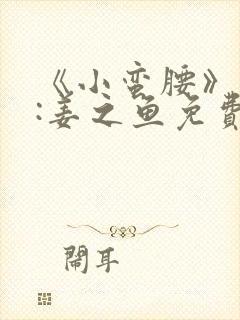 《小蛮腰》
:姜之鱼免費
鬧耳